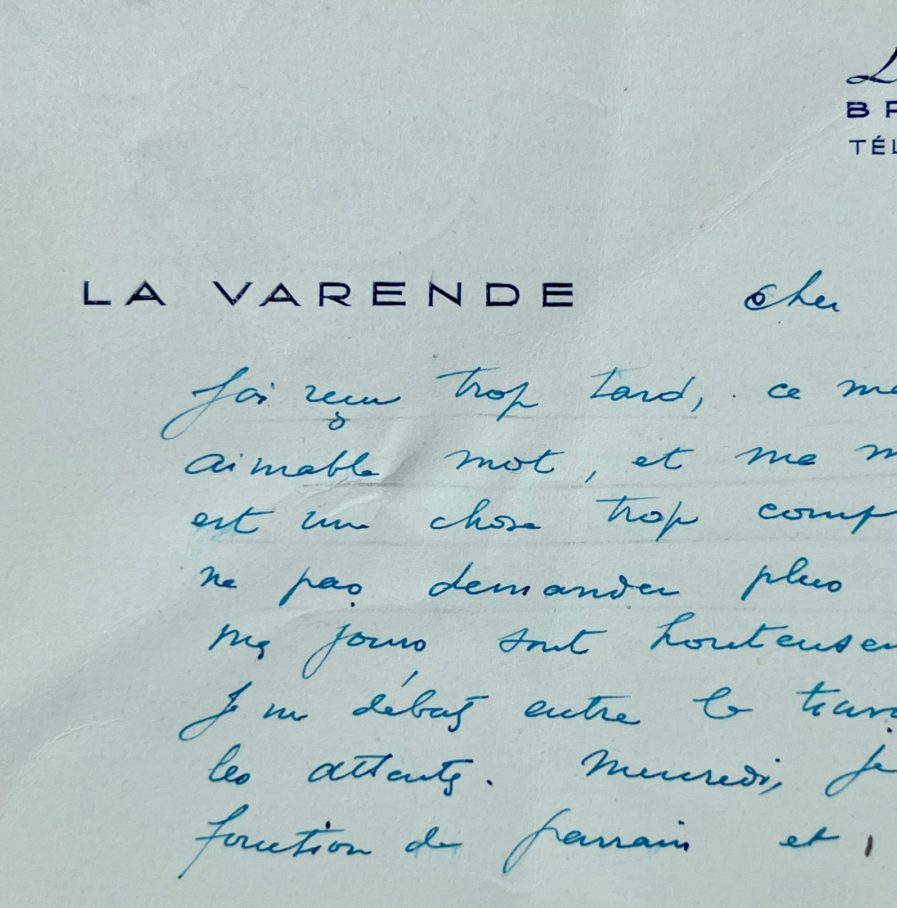 L
BR
TÉL
LA VARENDE
Cher
J'ai reçu trop tard, ce ma
aimable mot, et me m
est une chose trop comp
ne pas demander plus
Mes jours sont honteusem
Je me débats entre le trava
les attentes. Mercredi, je
fonction de parrain et